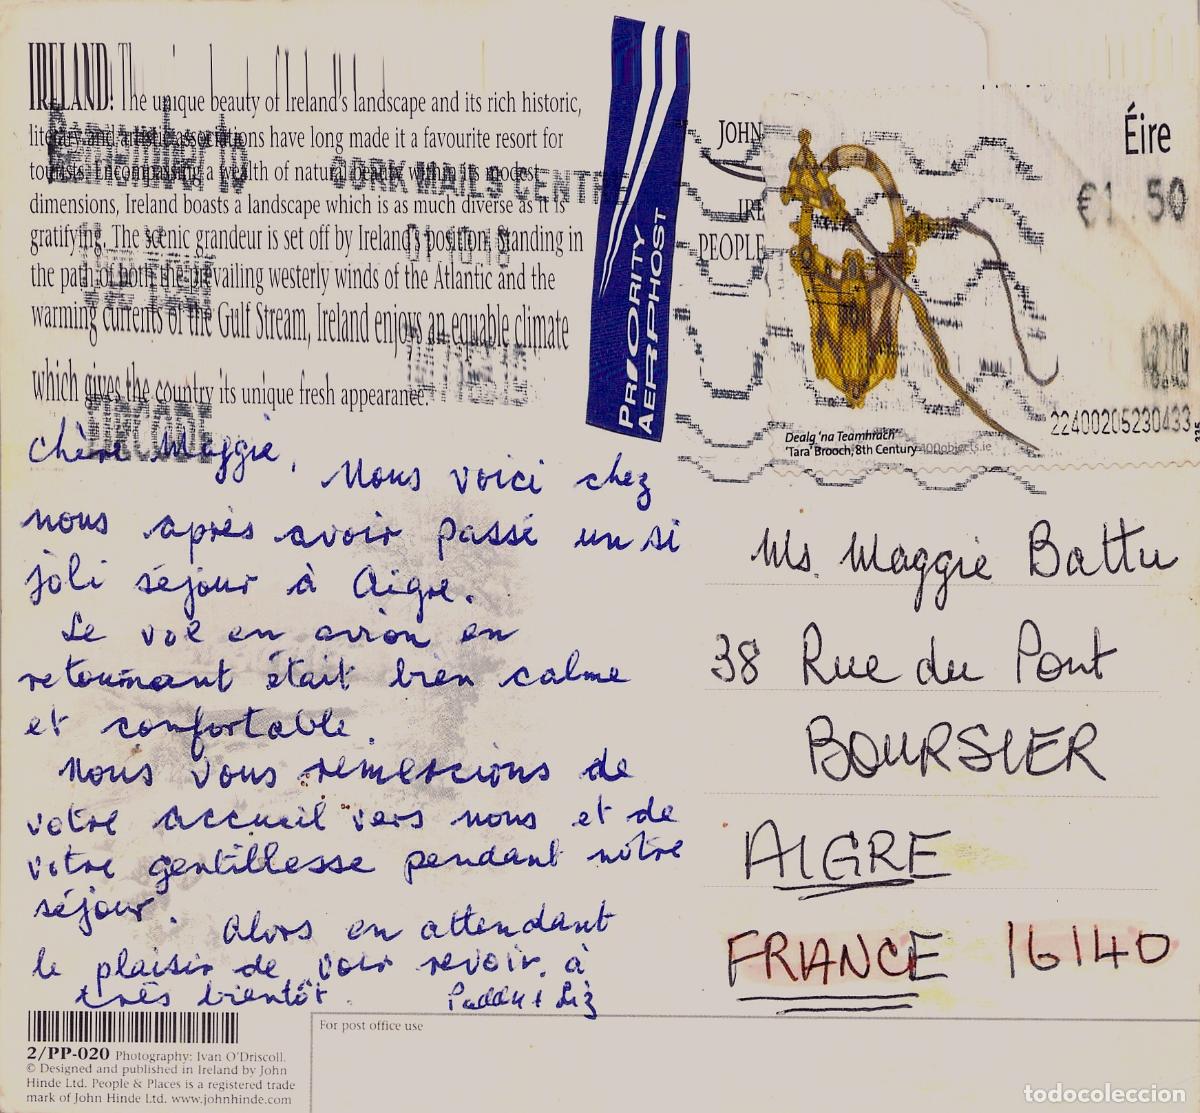 IRELAND: The unique beauty of Ireland's landscape and its rich historic,
literary and artistic associations have long made it a favourite resort for
tourists. Encompassing a wealth of natural beauty within its modest
dimensions, Ireland boasts a landscape which is as much diverse as it is
gratifying. The scenic grandeur is set off by Ireland's position. Standing in
the path of both the prevailing westerly winds of the Atlantic and the
warming currents of the Gulf Stream, Ireland enjoys an equable climate
which gives the country its unique fresh appearance.
Remember to
CORK MAILS CENTRE
EIRCODE
PRIORITY
AERPHOST
JOHN
IRE
PEOPLE
Éire
€1.50
22400205230433
Dealg 'na Teamhrach'
'Tara' Brooch, 8th Century
100objects.ie
Chère Maggie,
Nous voici chez
nous après avoir passé un si
joli séjour à Aigre.
Le vol en avion en
retournant était bien calme
et confortable.
Nous vous remercions de
votre accueil vers nous et de
votre gentillesse pendant notre
séjour.
Alors en attendant
le plaisir de voir revoir, à
très bientôt.
Paddy + Liz
Ms. Maggie Battu
38 Rue du Pont
BOURSIER
AIGRE
FRANCE 16140
2/PP-020 Photography: Ivan O'Driscoll.
© Designed and published in Ireland by John
Hinde Ltd. People & Places is a registered trade
mark of John Hinde Ltd. www.johnhinde.com
For post office use
todocoleccion